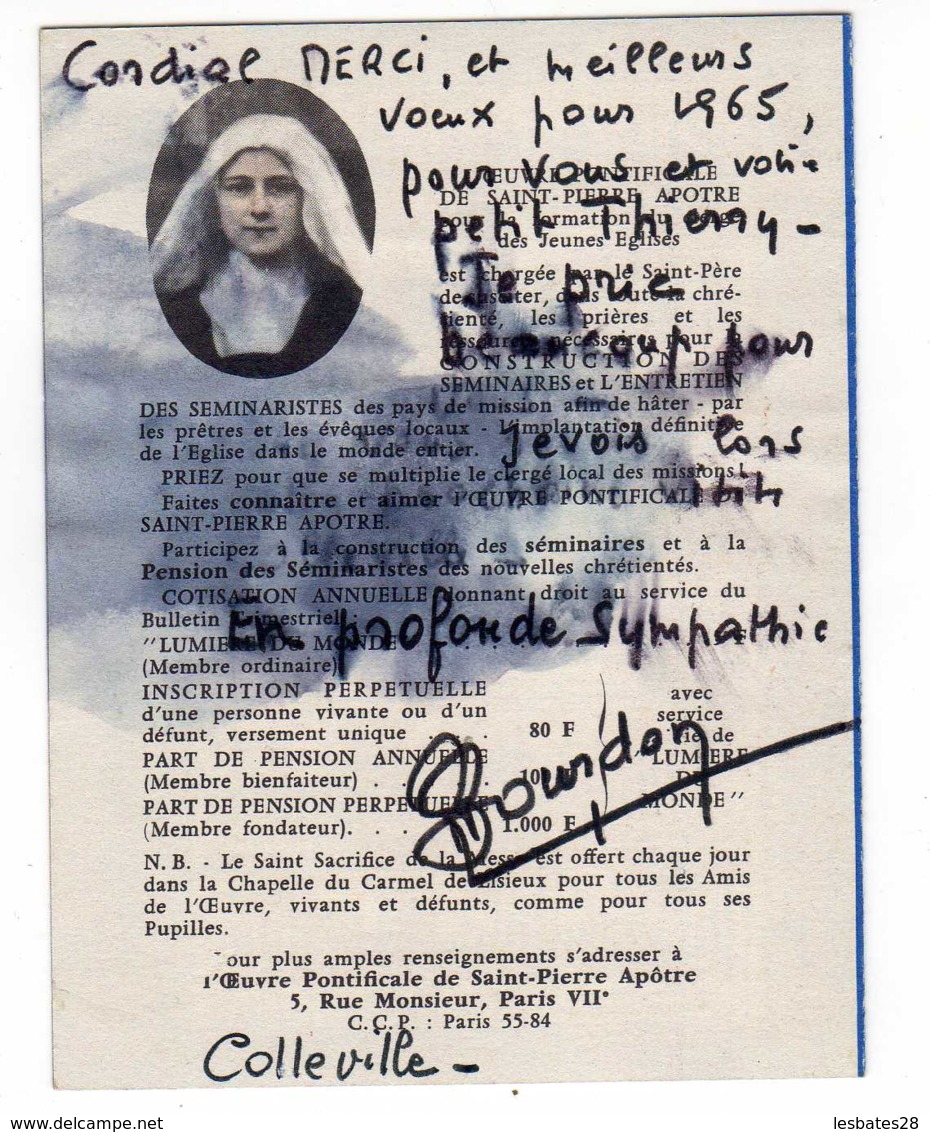 Cordial MERCI, et meilleurs
voeux pour 1965,
pour vous et votre
petit Thierry -
Je prie
beaucoup pour
Je vois lors
En profonde Sympathie
Bourdon
Colleville -
ŒUVRE PONTIFICALE
DE SAINT-PIERRE APOTRE
pour la formation du
des Jeunes Eglises
est chargée par le Saint-Père
de susciter, dans toute la chré-
tienté, les prières et les
ressources nécessaires pour la
CONSTRUCTION DES
SEMINAIRES et L'ENTRETIEN
DES SEMINARISTES des pays de mission afin de hâter - par
les prêtres et les évêques locaux - l'implantation définitive
de l'Eglise dans le monde entier.
PRIEZ pour que se multiplie le clergé local des missions!
Faites connaître et aimer l'ŒUVRE PONTIFICALE
SAINT-PIERRE APOTRE.
Participez à la construction des séminaires et à la
Pension des Séminaristes des nouvelles chrétientés.
COTISATION ANNUELLE donnant droit au service du
Bulletin Trimestriel :
"LUMIERE DU MONDE"
(Membre ordinaire)
INSCRIPTION PERPETUELLE
d'une personne vivante ou d'un
défunt, versement unique . . . 80 F
PART DE PENSION ANNUELLE
(Membre bienfaiteur) . . .
PART DE PENSION PERPETUELLE
(Membre fondateur). . . . 1.000 F
avec
service
de
"LUMIERE
DU
MONDE"
N.B. - Le Saint Sacrifice de la Messe est offert chaque jour
dans la Chapelle du Carmel de Lisieux pour tous les Amis
de l'Œuvre, vivants et défunts, comme pour tous ses
Pupilles.
Pour plus amples renseignements s'adresser à
l'Œuvre Pontificale de Saint-Pierre Apôtre
5, Rue Monsieur, Paris VII°
C.C.P. : Paris 55-84
lesbates28